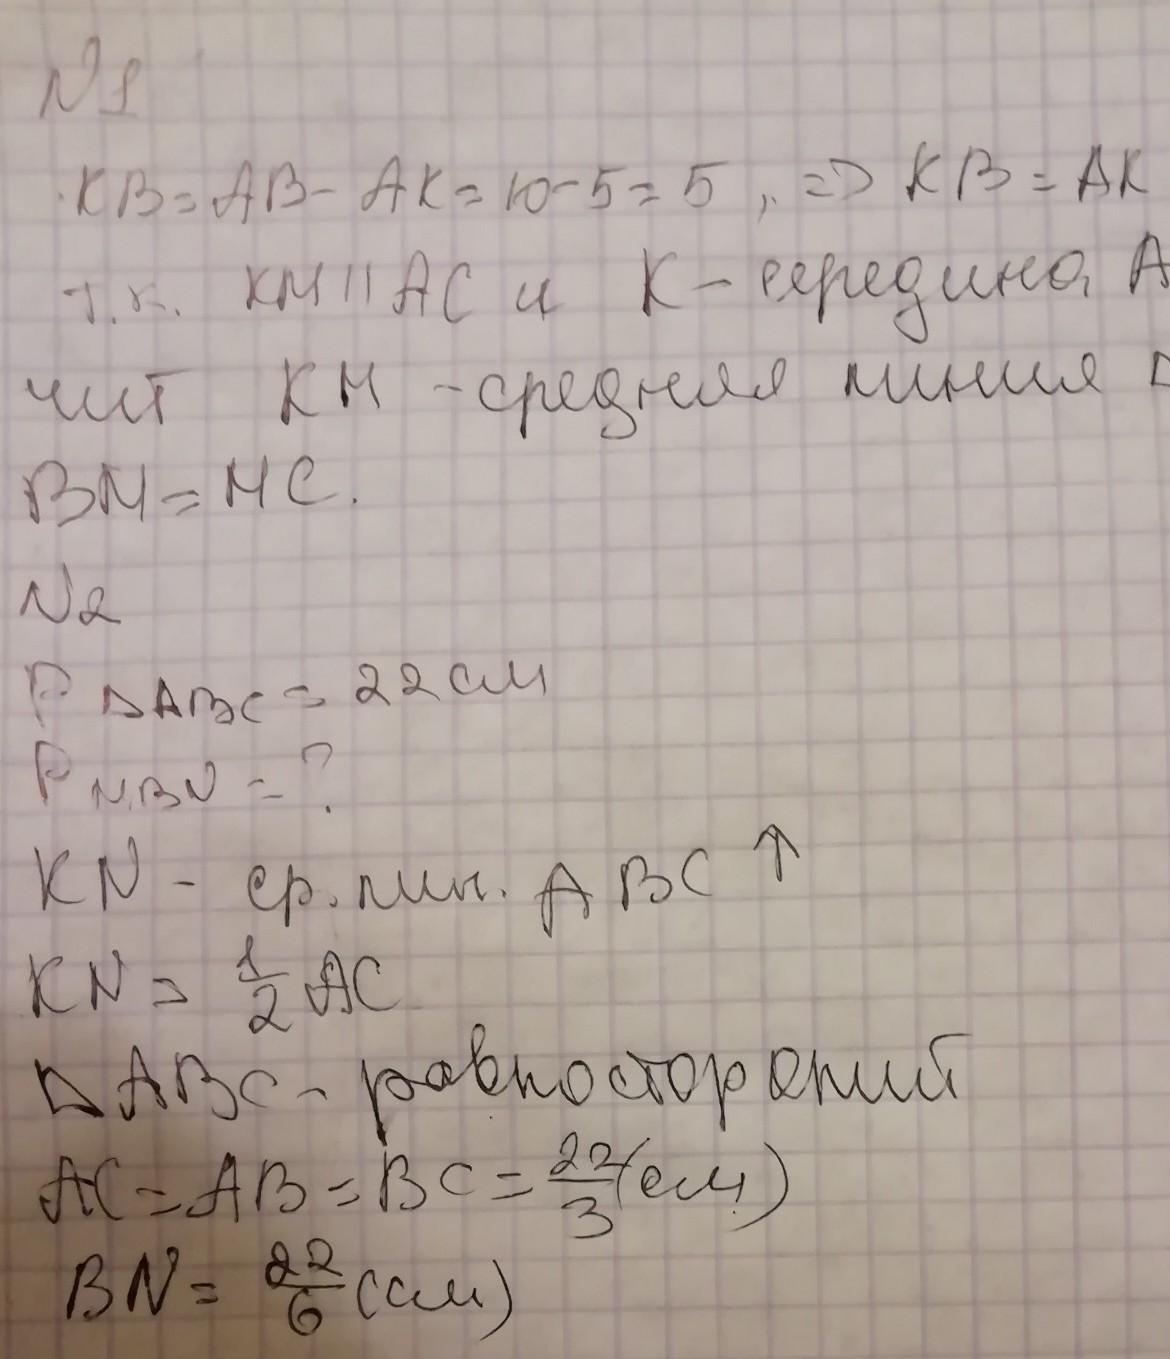 N1
KB = AB - AK = 10 - 5 = 5, => KB = AK
т.к. KM || AC и K - середина A
чит KM - средняя линия Δ
BM = MC.
N2
P ΔABC = 22 см
P NBN = ?
KN - ср. лин. ABC ↑
KN = 1/2 AC
ΔABC - равностороний
AC = AB = BC = 22/3 (см)
BN = 22/6 (см)